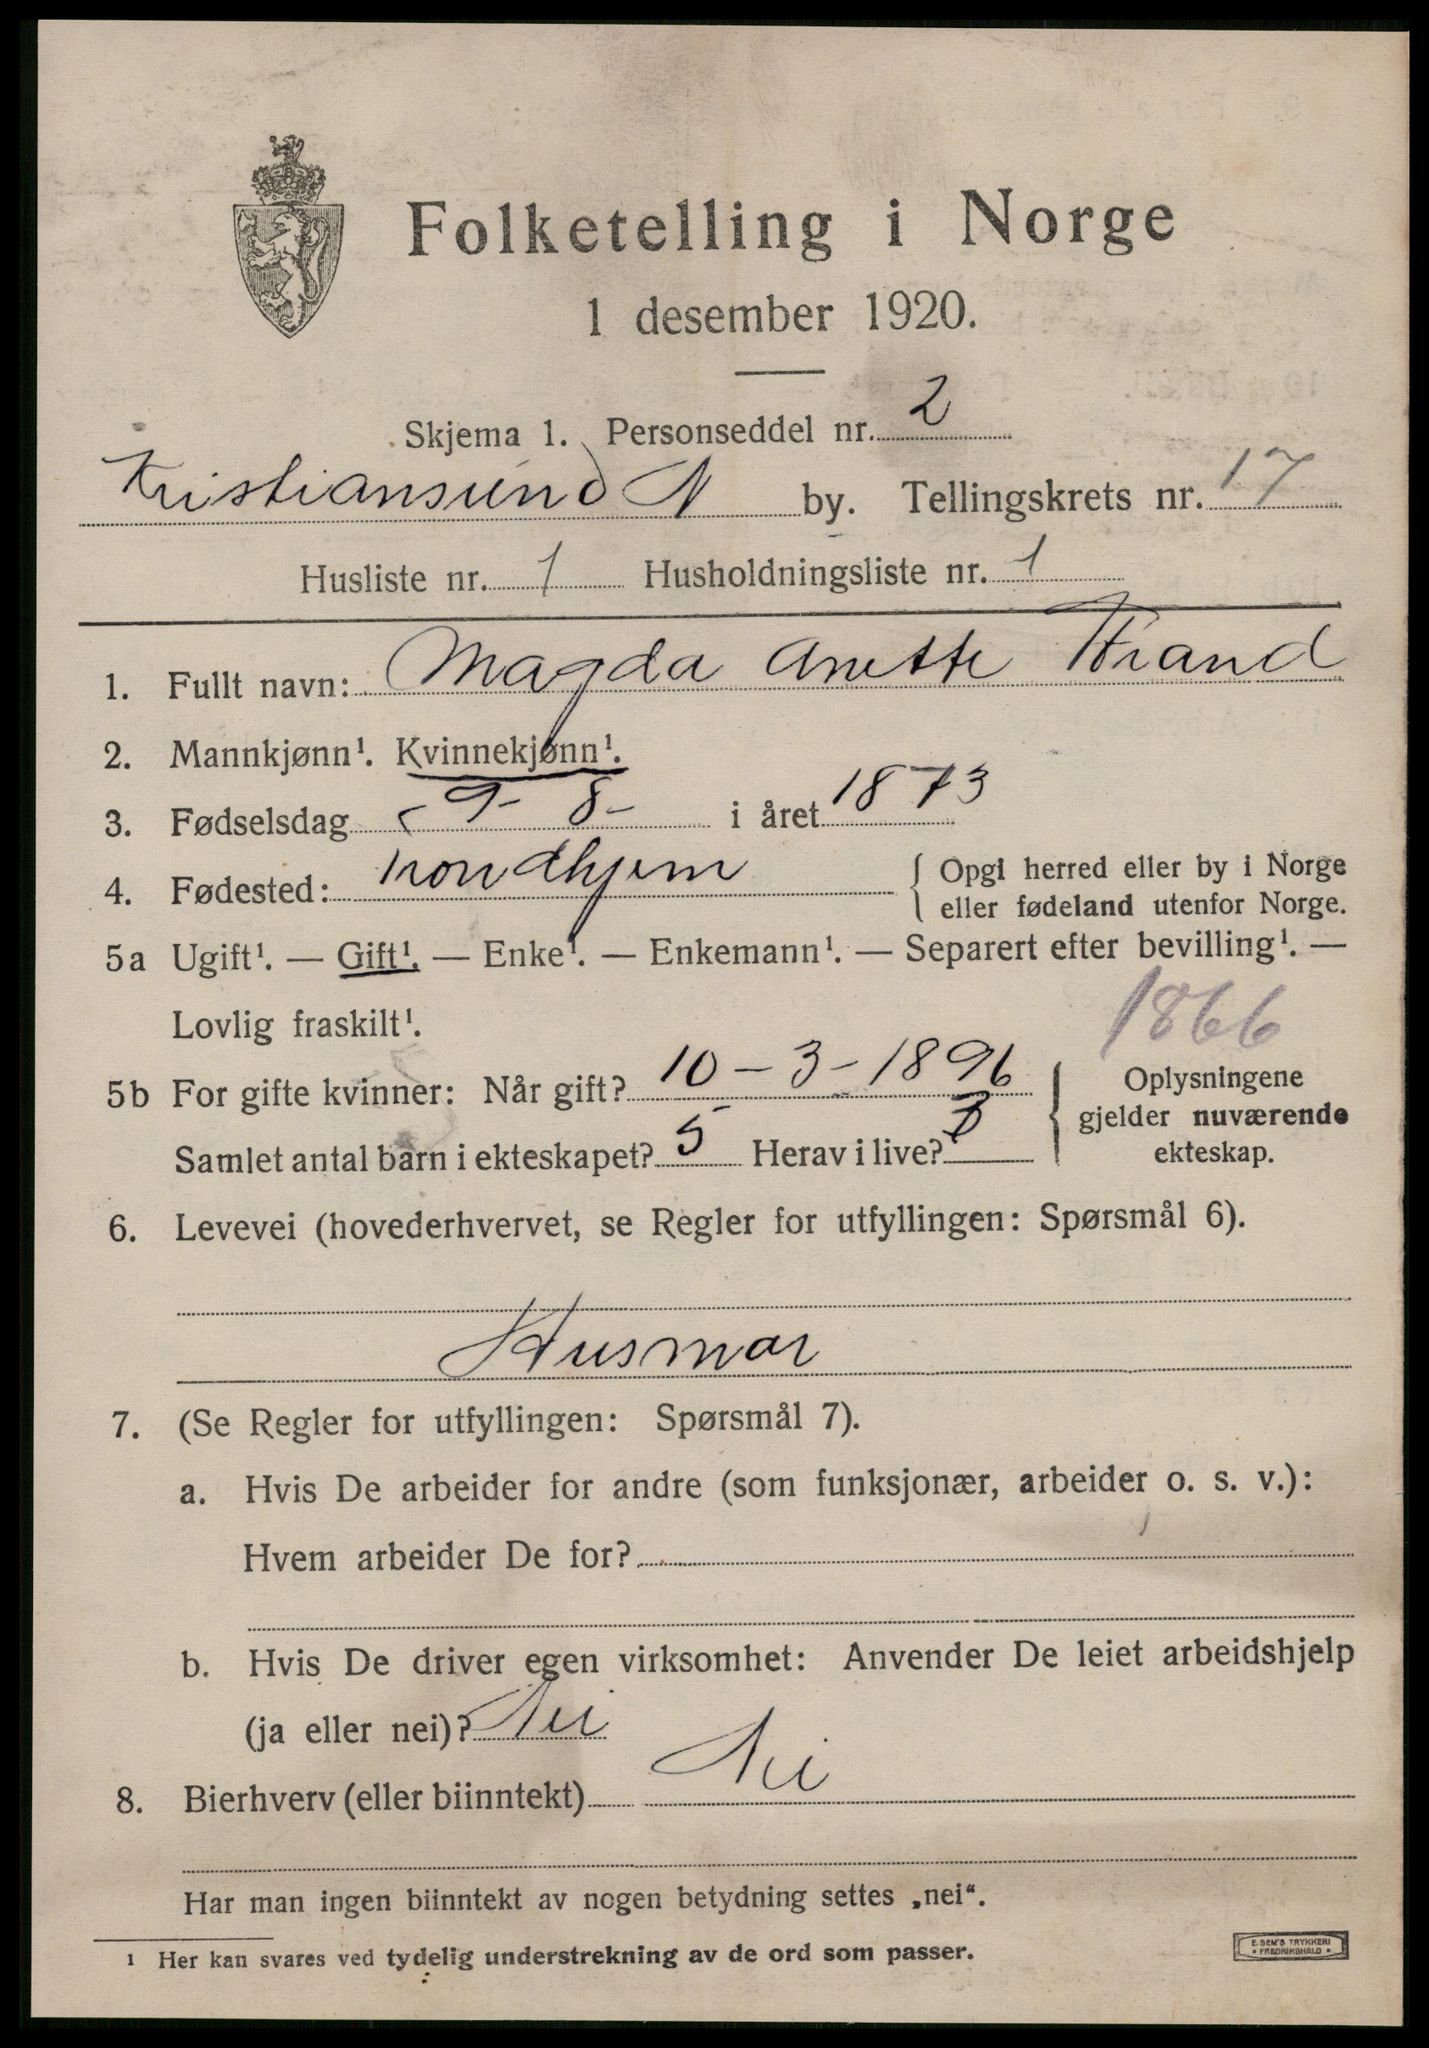 Folketelling i Norge
1 desember 1920.
Skjema 1. Personseddel nr. 2
Kristiansund N by. Tellingskrets nr. 17
Husliste nr. 1 Husholdningsliste nr. 1
1. Fullt navn: Magda Anette Strand
2. Mannkjønn¹. Kvinnekjønn¹.
3. Fødselsdag 9-8- i året 1873
4. Fødested: Trondhjem { Opgi herred eller by i Norge
eller fødeland utenfor Norge.
5a Ugift¹. — Gift¹. — Enke¹. — Enkemann¹. — Separert efter bevilling¹. —
Lovlig fraskilt¹.
1866
5b For gifte kvinner: Når gift? 10-3-1896
Samlet antal barn i ekteskapet? 5 Herav i live? 3
{ Oplysningene
gjelder nuværende
ekteskap.
6. Levevei (hovederhvervet, se Regler for utfyllingen: Spørsmål 6).
Husmor
7. (Se Regler for utfyllingen: Spørsmål 7).
a. Hvis De arbeider for andre (som funksjonær, arbeider o. s. v.):
Hvem arbeider De for?
b. Hvis De driver egen virksomhet: Anvender De leiet arbeidshjelp
(ja eller nei)? Nei
8. Bierhverv (eller biinntekt) Nei
Har man ingen biinntekt av nogen betydning settes „nei“.
1 Her kan svares ved tydelig understrekning av de ord som passer.
E. SEM'S TRYKKERI
• FREDRIKSHALD •